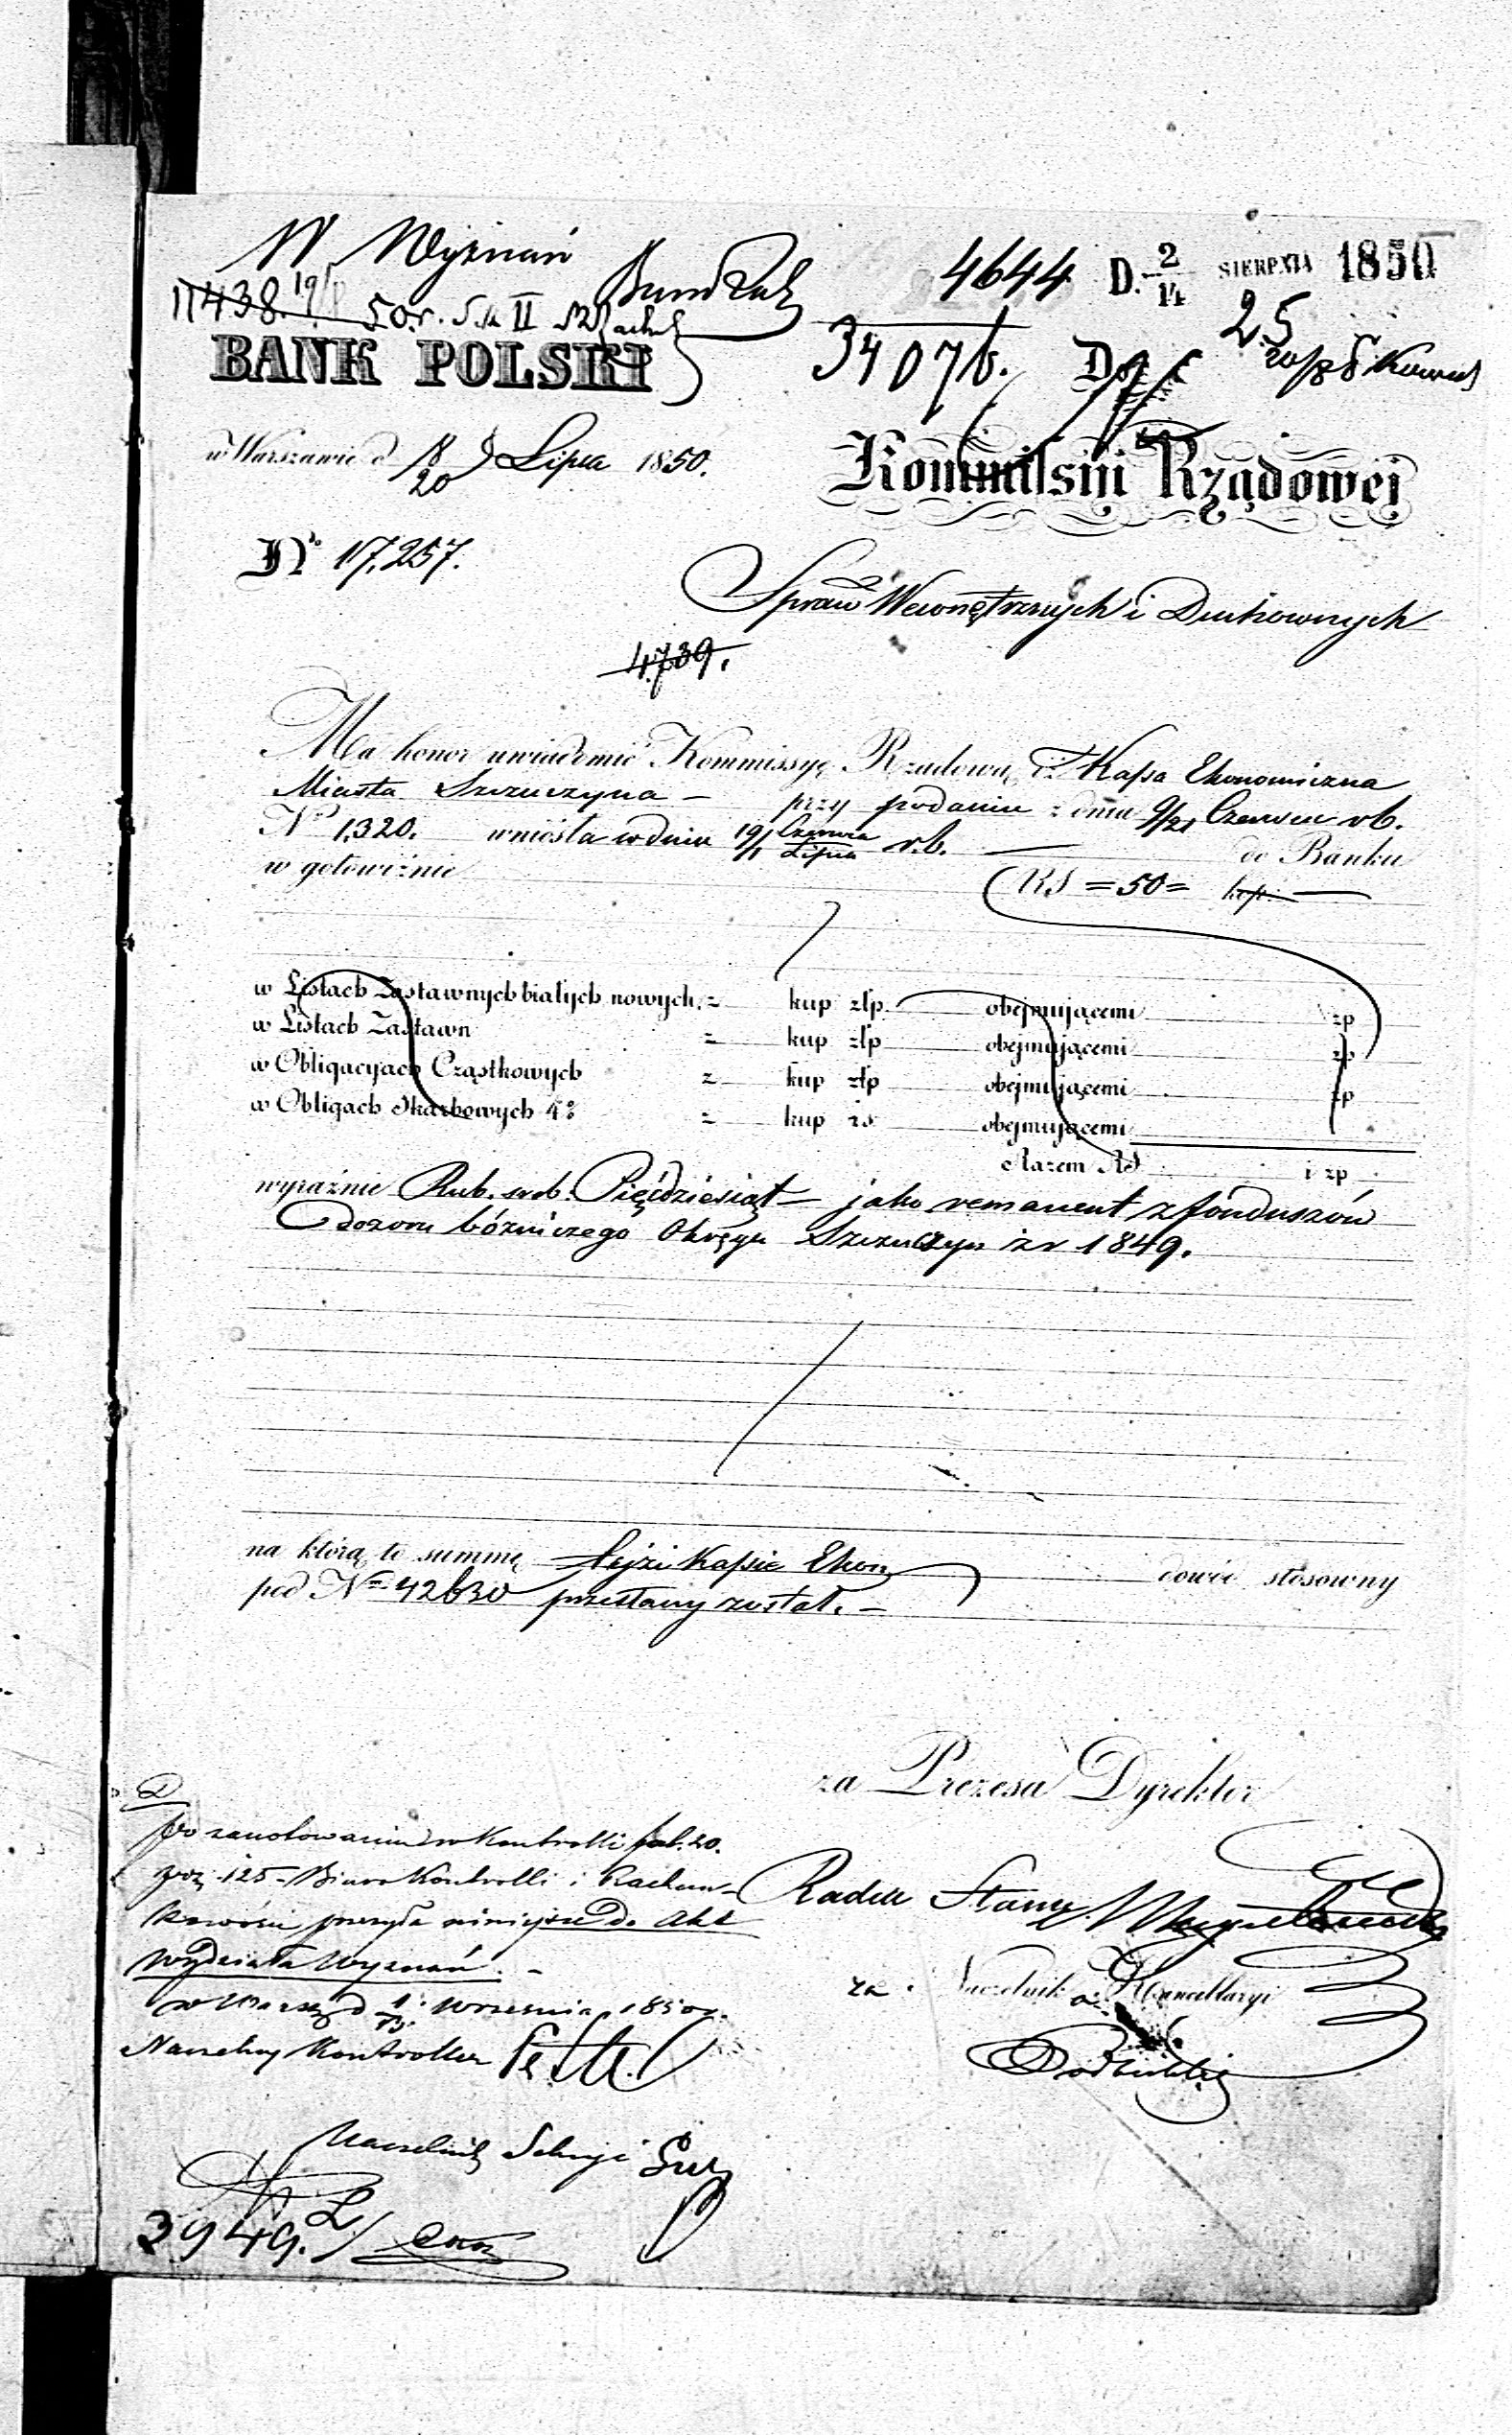 W Wyznań
4644 D. 2/14 SIERPNIA 1850
11438. 19/ 50 r. S. II
34076. Do
25
BANK POLSKI
w Warszawie d 8/20 Lipca 1850.
Kommissii Rządowej
N° 17,257.
Spraw Wewnętrznych i Duchownych
4739.
Ma honor uwiadomić Kommissyę Rządową, iż Kassa Ekonomiczna
Miasta Szczuczyna — przy podaniu z dnia 9/21 Czerwca r.b.
N° 1,320. wniosła w dniu 19/1 Czerwca/Lipca r.b. — do Banku
w gotowiźnie RS = 50 = kop. —
w Listach Zastawnych białych nowych = kup złp obejmującemi zp
w Listach Zastawn = kup złp obejmującemi zp
w Obligacyach Cząstkowych = kup złp obejmującemi zp
w Obligach Skarbowych 4% = kup rs obejmującemi
Razem RS i zp
wyraźnie Rub. sreb. Pięćdziesiąt — jako remanent z funduszów
dozoru bóźniczego Okręgu Szczuczyn z r 1849.
na którą to summę tejże Kassie Ekon. dowód stosowny
pod N° 42630 przesłany został. —
za Prezesa Dyrektor
po zanotowaniu w Kontrolli fol. 20.
poz. 125 - Biuro Kontrolli i Rachun-
kowości przesyła niniejsze do Akt
Wydziału Wyznań. —
Radca Stanu
w Warsz. d 1/13 Września 1850 r.
za Naczelnik Kancellaryi
Naczelny Kontroller
Podbielski
Naczelnik Sekcyi
3949.